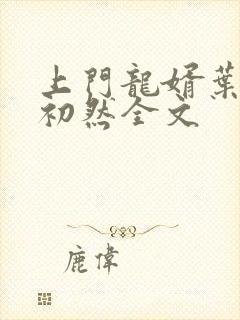 上門龍婿葉
初然全文
鹿偉